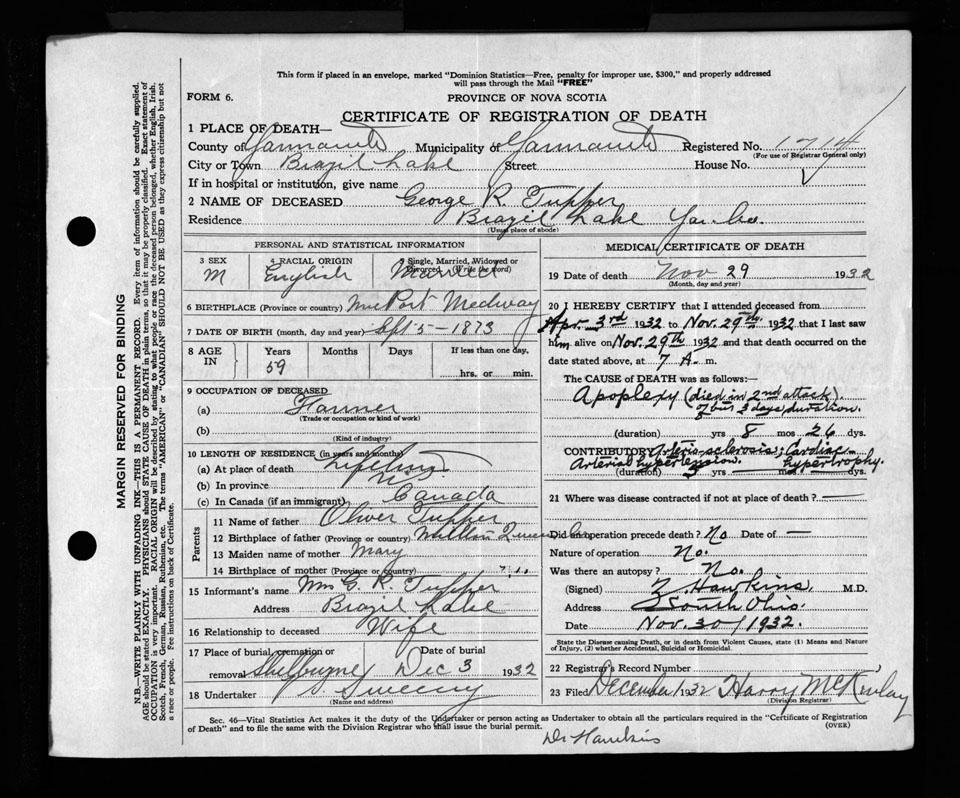 This form if placed in an envelope, marked "Dominion Statistics—Free, penalty for improper use, $300," and properly addressed
will pass through the Mail "FREE"
FORM 6.
PROVINCE OF NOVA SCOTIA
CERTIFICATE OF REGISTRATION OF DEATH
1 PLACE OF DEATH—
County of Yarmouth Municipality of Yarmouth Registered No. 1714
(For use of Registrar General only)
City or Town Brazil Lake Street House No.
If in hospital or institution, give name
2 NAME OF DECEASED George R. Tupper
Residence Brazil Lake Yar. Co.
(Usual place of abode)
PERSONAL AND STATISTICAL INFORMATION
3 SEX 4 RACIAL ORIGIN 5 Single, Married, Widowed or Divorced (Write the word)
M English Married
6 BIRTHPLACE (Province or country) Port Medway
7 DATE OF BIRTH (month, day and year) Sept 5 - 1873
8 AGE IN Years Months Days If less than one day,
59
hrs. or min.
9 OCCUPATION OF DECEASED
(a) Farmer
(Trade or occupation or kind of work)
(b)
(Kind of industry)
10 LENGTH OF RESIDENCE (in years and months)
(a) At place of death
(b) In province
(c) In Canada (if an immigrant) Canada
Parents
11 Name of father Oliver Tupper
12 Birthplace of father (Province or country) Milton
13 Maiden name of mother Mary
14 Birthplace of mother (Province or country)
15 Informant's name Mrs G. R. Tupper
Address Brazil Lake
16 Relationship to deceased Wife
17 Place of burial, cremation or removal Date of burial
Shelburne Dec 3 1932
18 Undertaker Sweeny
(Name and address)
MEDICAL CERTIFICATE OF DEATH
19 Date of death Nov 29 1932
(Month, day and year)
20 I HEREBY CERTIFY that I attended deceased from
Apr. 3rd 1932 to Nov. 29th 1932 that I last saw
him alive on Nov. 29th 1932 and that death occurred on the
date stated above, at 7 A. m.
The CAUSE OF DEATH was as follows:—
Apoplexy (died in 2nd attack)
of but 3 days duration.
(duration) yrs 8 mos 26 dys.
CONTRIBUTORY Arterio-sclerosis; Cardiac
Arterial hypertension. hypertrophy.
(duration) yrs mos dys.
21 Where was disease contracted if not at place of death? —
Did an operation precede death? No Date of —
Nature of operation No.
Was there an autopsy? No.
(Signed) Z. Hawkins, M.D.
Address South Ohio.
Date Nov. 30/1932.
State the Disease causing Death, or in death from Violent Causes, state (1) Means and Nature
of Injury, (2) whether Accidental, Suicidal or Homicidal.
22 Registrar's Record Number
23 Filed December 1932 Harry McKinlay
(Division Registrar)
Sec. 46—Vital Statistics Act makes it the duty of the Undertaker or person acting as Undertaker to obtain all the particulars required in the "Certificate of Registration
of Death" and to file the same with the Division Registrar who shall issue the burial permit.
(OVER)
Dr Hawkins
MARGIN RESERVED FOR BINDING
N.B.—WRITE PLAINLY WITH UNFADING INK—THIS IS A PERMANENT RECORD. Every item of information should be carefully supplied.
AGE should be stated EXACTLY. PHYSICIANS should STATE CAUSE OF DEATH in plain terms, so that it may be properly classified. Exact statement of
OCCUPATION is very important. RACIAL ORIGIN will be described by stating to what people or race the deceased person belonged, whether English, Irish,
Scotch, French, German, Russian, Ruthenian, etc. The terms "AMERICAN" or "CANADIAN" SHOULD NOT BE USED as they express citizenship but not
a race or people. Fee instructions on back of Certificate.